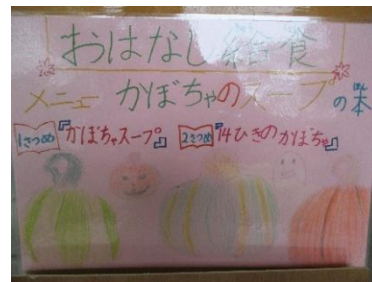 おはなし給食
メニュー かぼちゃのスープの本
1さつめ『かぼちゃスープ』 2さつめ『14ひきのかぼちゃ』